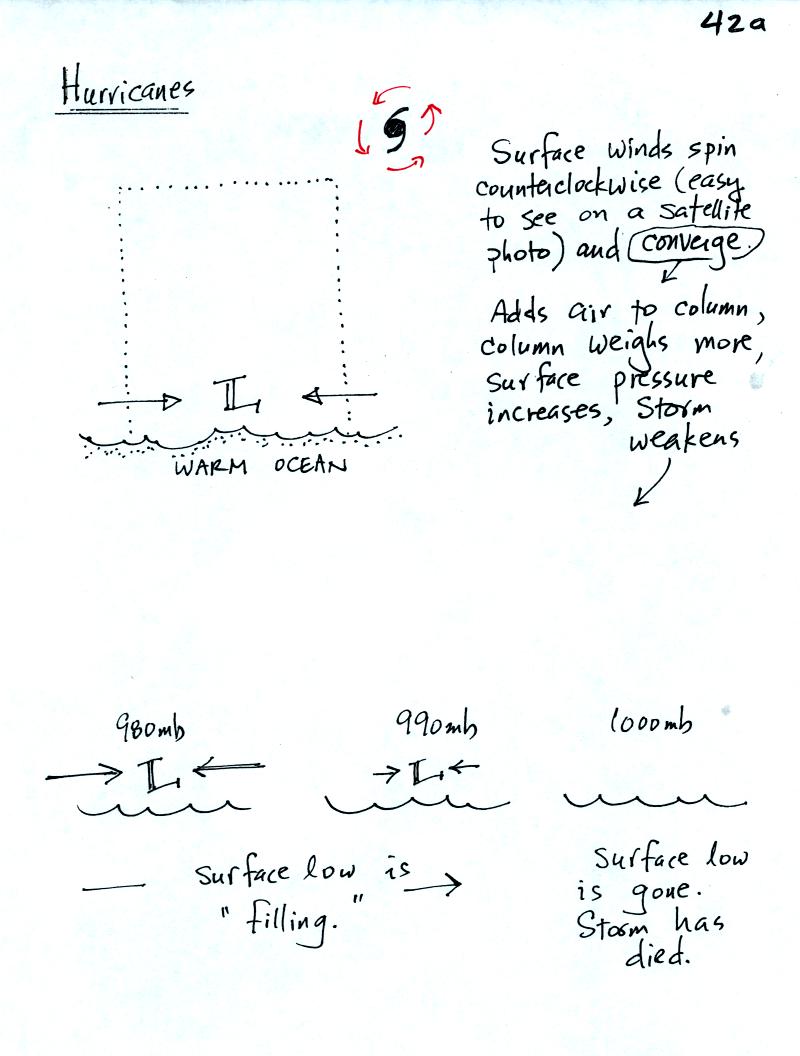 42a
Hurricanes
Surface winds spin
counterclockwise (easy
to see on a satellite
photo) and converge.
Adds air to column,
column weighs more,
surface pressure
increases, Storm
weakens
L
WARM OCEAN
980mb 990mb 1000mb
L L
Surface low is
"filling."
Surface low
is gone.
Storm has
died.